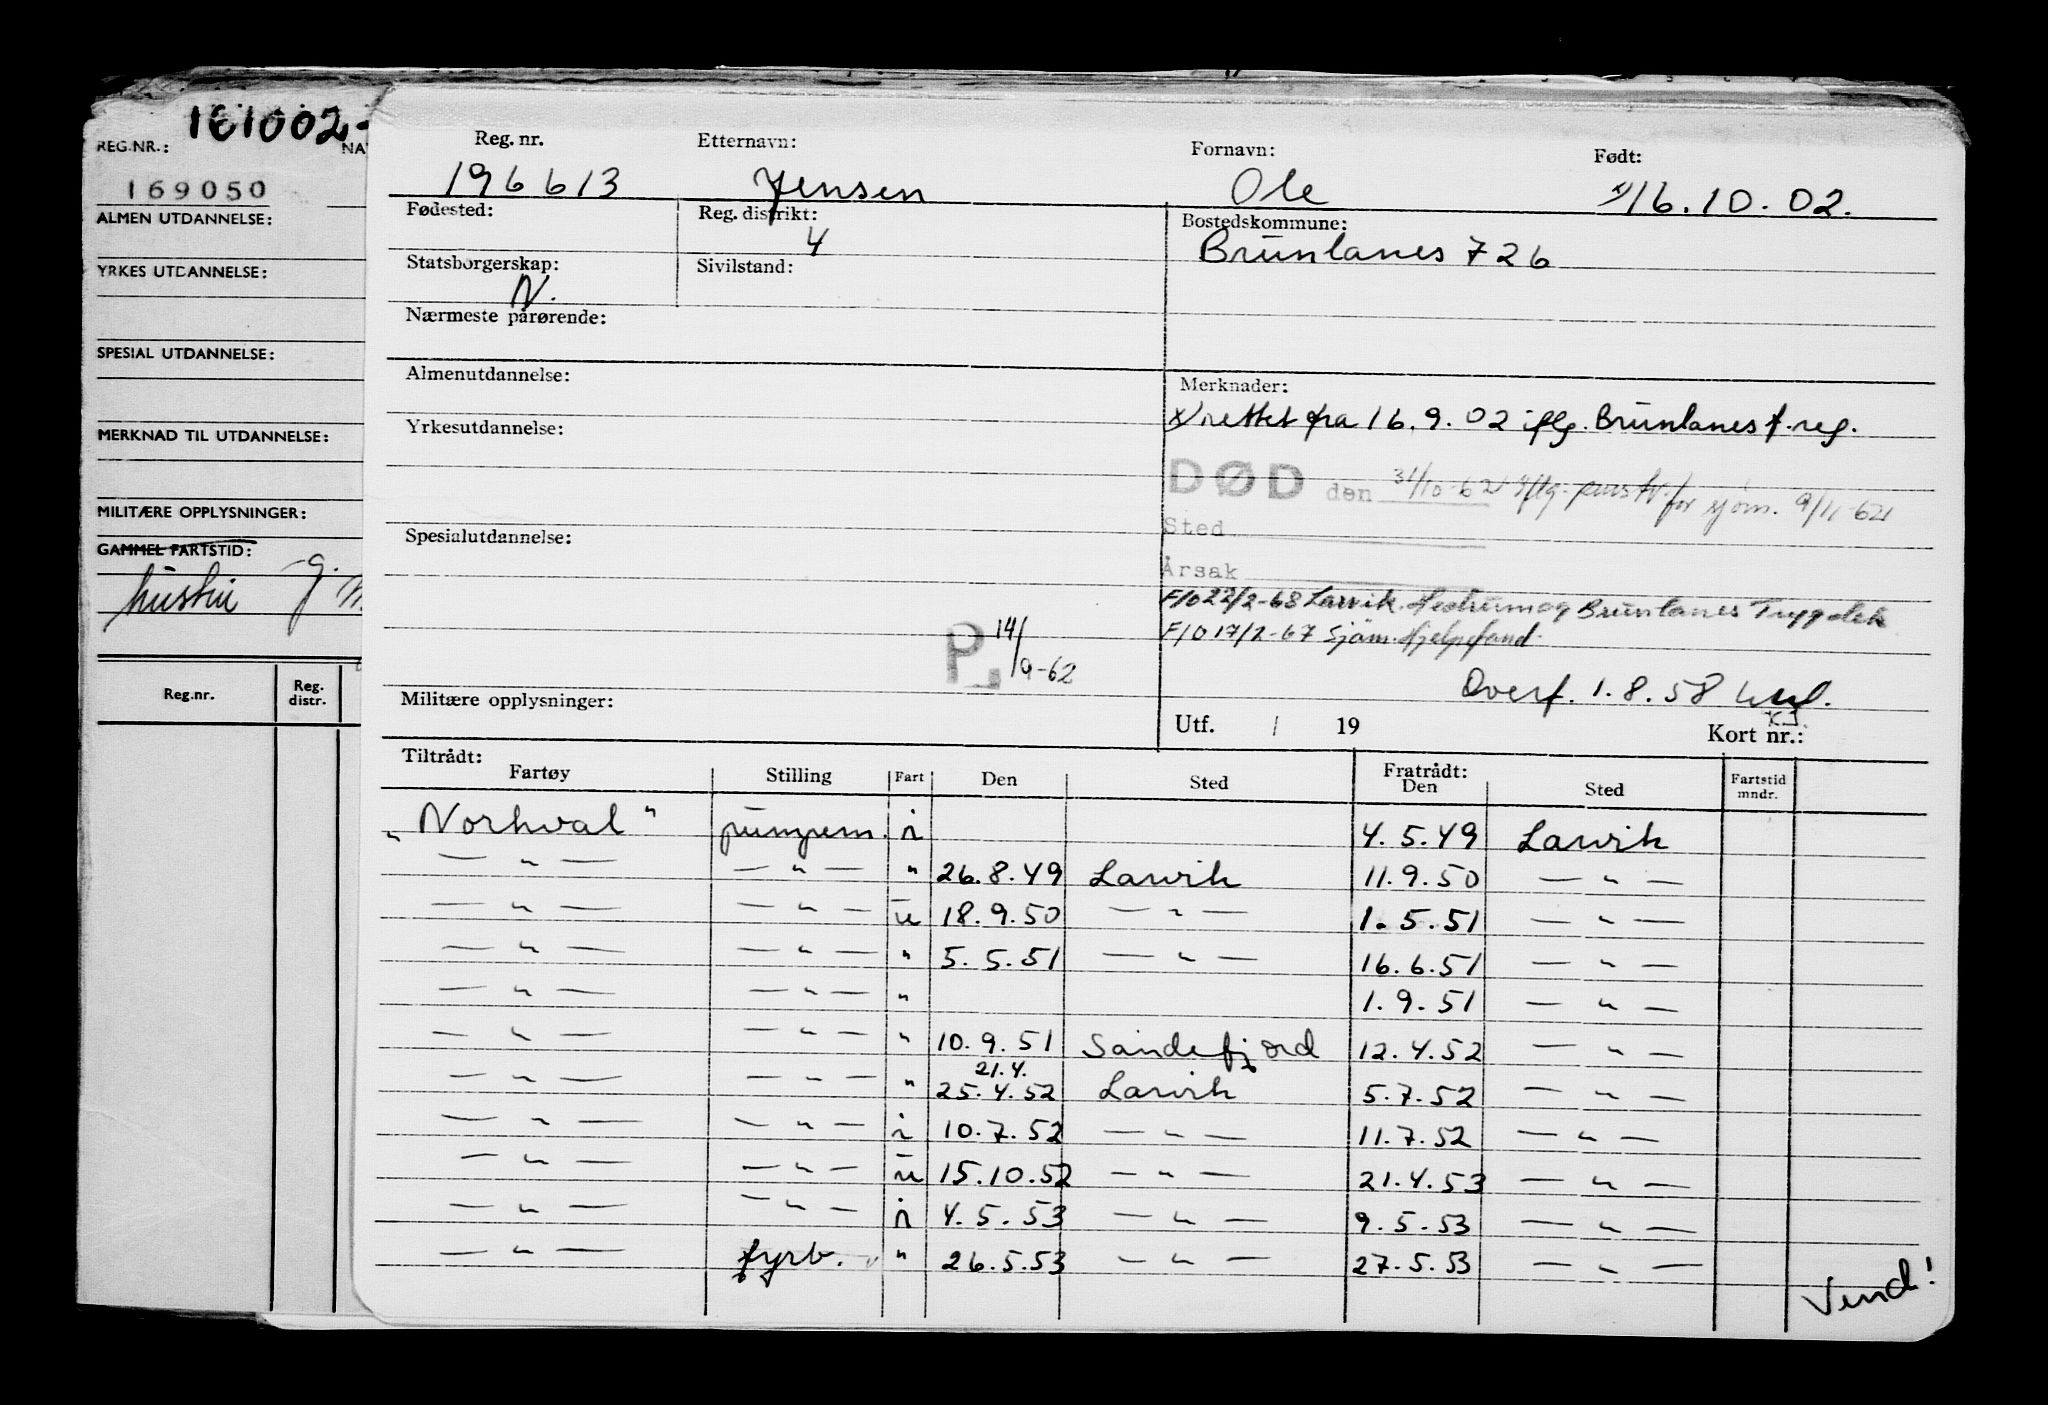 161002-
REG.NR.: NA
169050
ALMEN UTDANNELSE:
YRKES UTDANNELSE:
SPESIAL UTDANNELSE:
MERKNAD TIL UTDANNELSE:
MILITÆRE OPPLYSNINGER:
GAMMEL FARTSTID:
Reg.nr. Reg. distr.
Reg. nr. Etternavn: Fornavn: Født:
196613 Jensen Ole x/16.10.02.
Fødested: Reg. distrikt: Bostedskommune:
4 Brunlanes 726
Statsborgerskap: Sivilstand:
N.
Nærmeste pårørende:
Almenutdannelse: Merknader:
x/ rettet fra 16.9.02 iflg. Brunlanes f.reg.
Yrkesutdannelse:
DØD den 31/10-62 iflg. for sjøm. 9/11-62
Sted
Spesialutdannelse:
Årsak
F/O 22/2-68 Larvik Hedrum og Brunlanes Trygdek
F/O 17/2-67 Sjøm. Hjelpefond.
P. 14/9-62
Overf. 1.8.58
Militære opplysninger:
Utf. / 19 Kort nr.:
Tiltrådt: Fratrådt:
Fartøy Stilling Fart Den Sted Den Sted Fartstid mndr.
"Norhval" pumpem. i 4.5.49 Larvik
— " — — " — " 26.8.49 Larvik 11.9.50 — " —
— " — — " — u 18.9.50 — " — 1.5.51 — " —
— " — — " — " 5.5.51 — " — 16.6.51 — " —
— " — — " — " 1.9.51 — " —
— " — — " — " 10.9.51 Sandefjord 12.4.52 — " —
21.4.
— " — — " — " 25.4.52 Larvik 5.7.52 — " —
— " — — " — i 10.7.52 — " — 11.7.52 — " —
— " — — " — u 15.10.52 — " — 21.4.53 — " —
— " — — " — i 4.5.53 — " — 9.5.53 — " —
— " — fyrb. " 26.5.53 — " — 27.5.53 — " —
Vend!